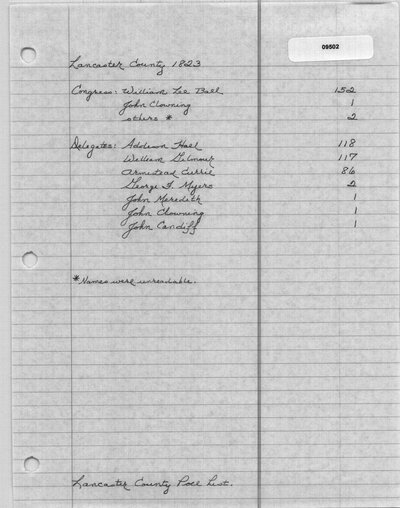 09502
Lancaster County 1823
Congress: William Lee Ball 152
John Clowning 1
others * 2
Delegates: Addison Hall 118
William Gilmour 117
Armistead Currie 86
George F. Myers 2
John Meredith 1
John Chowning 1
John Cundiff 1
*Names were unreadable.
Lancaster County Poll List.